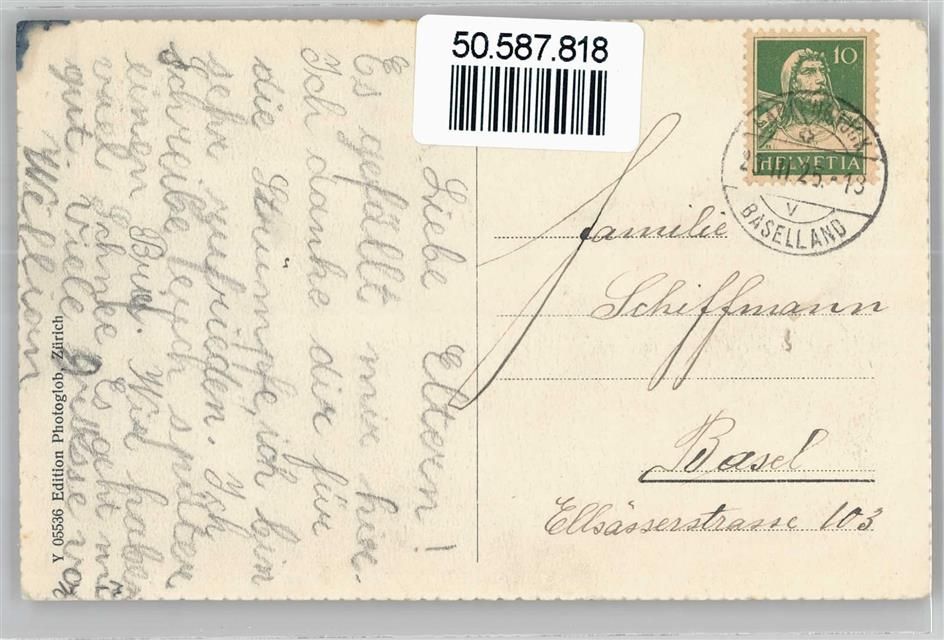 50.587.818
10
HELVETIA
25.-18
V
BASELLAND
Liebe Eltern!
Es gefällt mir hier.
Ich danke dir für
die Strümpfe, ich bin
sehr zufrieden. Ich
schreibe feuch später
einen Brief. Wir haben
viel Schnee. Es geht mir
gut. Viele grüsse von
Familie
Schiffmann
Basel
Ellsässerstrasse 103
Y 05536 Edition Photoglob, Zürich